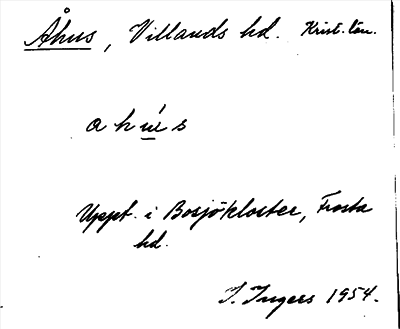 Åhus, Villands hd. Krist. län.
ahú̲s
Uppt. i Bosjökloster, Frosta
hd.
I. Ingers 1954.